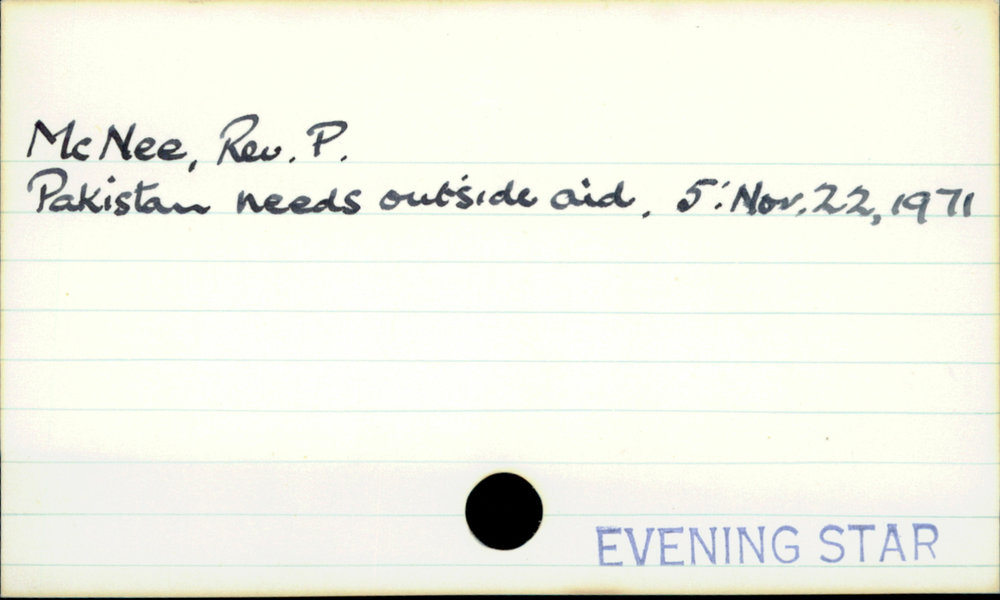 McNee, Rev. P.
Pakistan needs outside aid. 5: Nov. 22, 1971
EVENING STAR